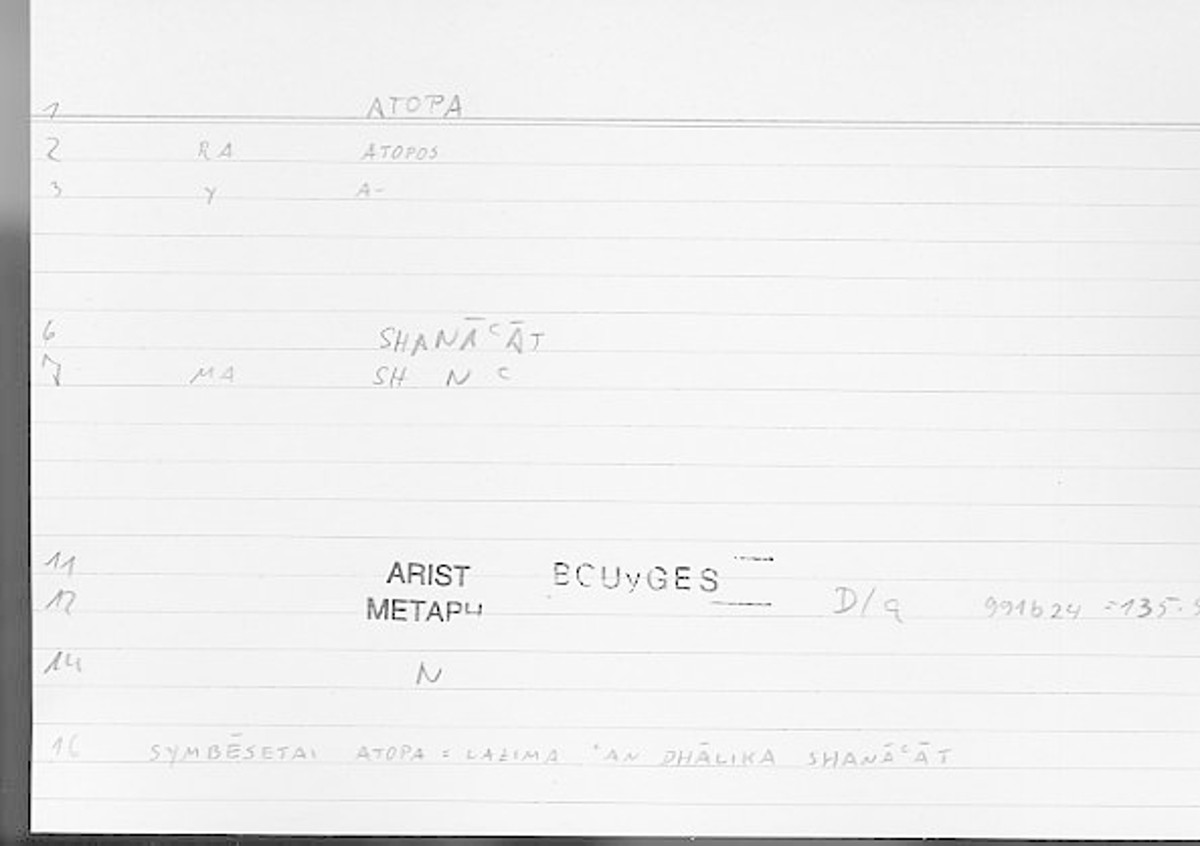 1 ATOPA
2 RA ATOPOS
3 y A-
6 SHANĀᶜĀT
7 MA SH N ᶜ
11 ARIST BCUyGES
12 METAPH D/q 991b24 =135.
14 N
16 SYMBĒSETAI ATOPA = LAZIMA ʿAN DHĀLIKA SHANĀᶜĀT